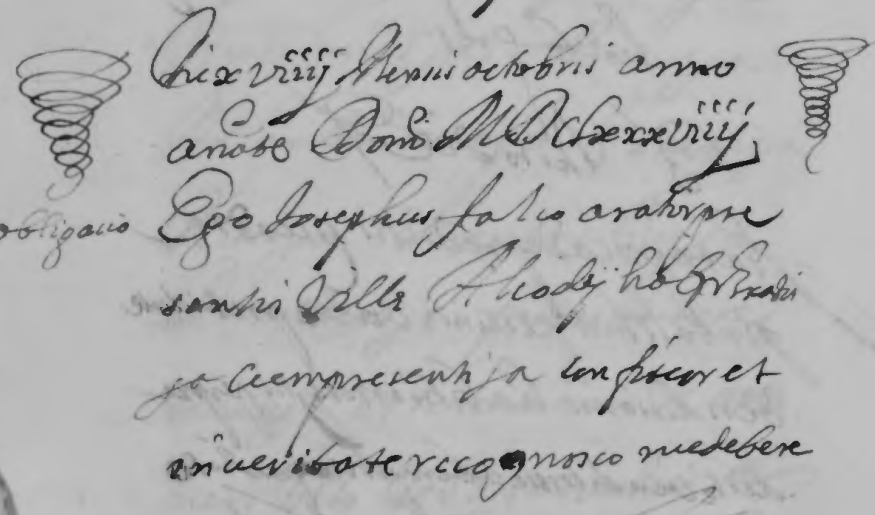 Die xviiij Mensis octobris anno
anate Domi MDClxxxviiij
obligacio Ego Josephus falco arator pre
sentis Ville Alcodij
ja cum presenti ja confiteor et
in veritate recognosco me debere